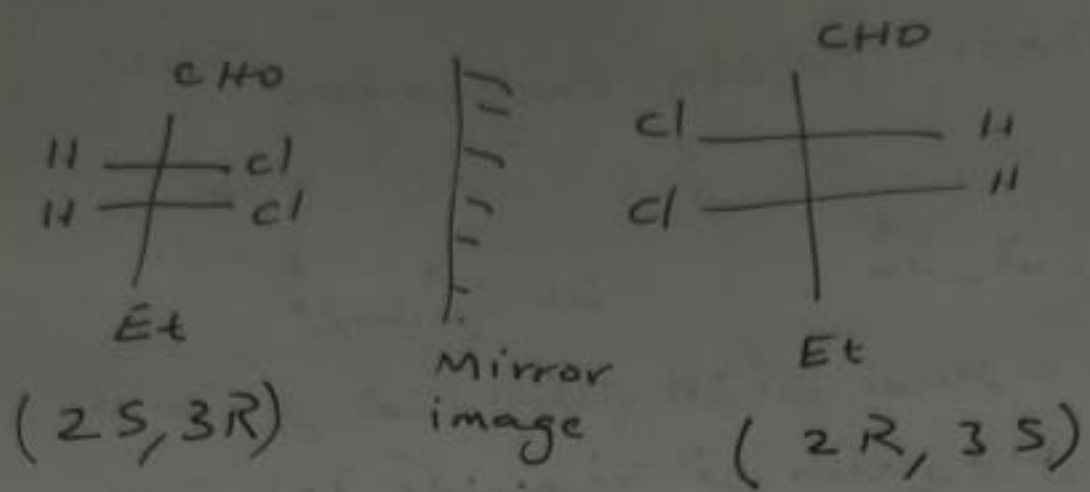 CHO
H Cl
H Cl
Et
(2S,3R)
Mirror
image
CHO
Cl H
Cl H
Et
(2R, 3S)